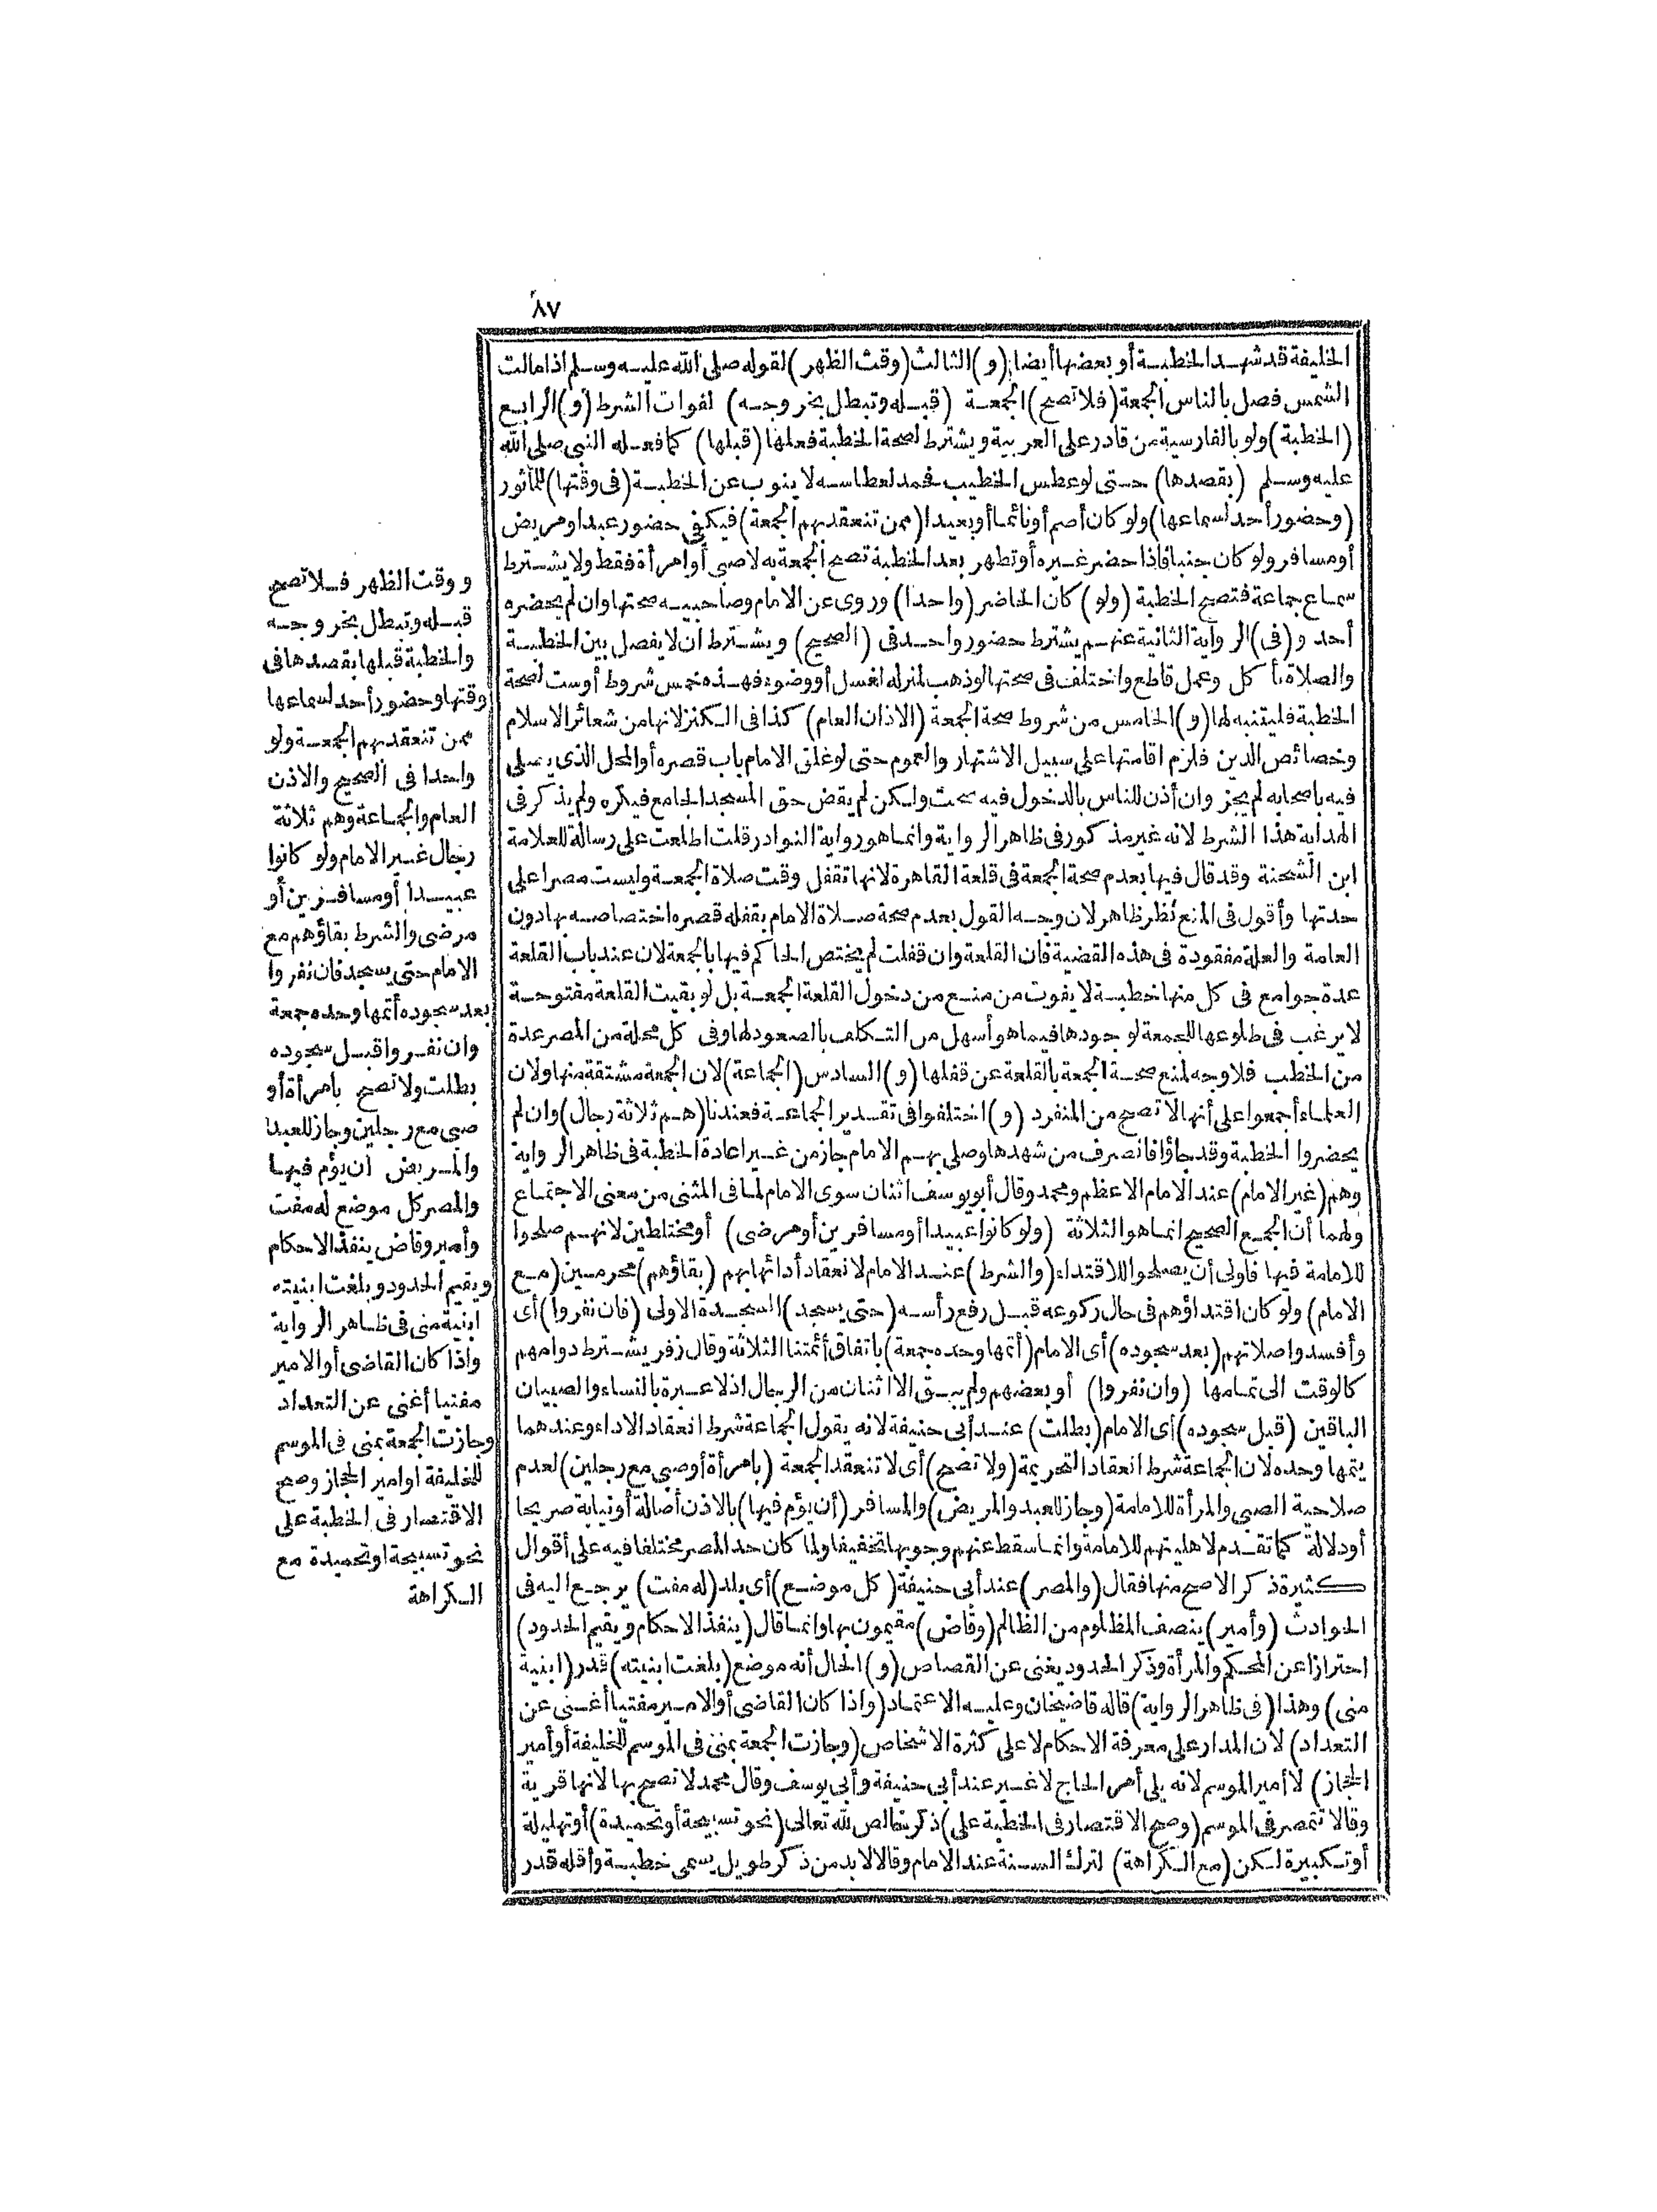 ٨٧
الخليفة قد شهد الخطبة أو بعضها أيضا (و) الثالث (وقت الظهر) لقوله صلى الله عليه وسلم اذا مالت
الشمس فصل بالناس الجمعة (فلا تصح) الجمعة (قبله وتبطل بخروجه) لفوات الشرط (و) الرابع
(الخطبة) ولو بالفارسية من قادر على العربية ويشترط لصحة الخطبة فعلها (قبلها) كما فعله النبي صلى الله
عليه وسلم (بقصدها) حتى لو عطس الخطيب فحمد لعطاسه لا ينوب عن الخطبة (فى وقتها) للمأثور
(وحضور أحد لسماعها) ولو كان أصم أو نائما أو بعيدا (ممن تنعقد بهم الجمعة) فيكفى حضور عبد أو مريض
أو مسافر ولو كان جنبا فاذا حضر غيره أو تطهر بعد الخطبة تصح الجمعة به لا صبى أو امرأة فقط ولا يشترط
سماع جماعة فتصح الخطبة (ولو) كان الحاضر (واحدا) وروى عن الامام وصاحبيه صحتها وان لم يحضره
أحد و (فى) الرواية الثانية عنهم يشترط حضور واحد فى (الصحيح) ويشترط أن لا يفصل بين الخطبة
والصلاة بأكل وعمل قاطع واختلف فى صحتها لو ذهب لمنزله لغسل أو وضوء فهذه خمس شروط أوست لصحة
الخطبة فليتنبه لها (و) الخامس من شروط صحة الجمعة (الاذن العام) كذا فى الكنز لانها من شعائر الاسلام
وخصائص الدين فلزم اقامتها على سبيل الاشتهار والعموم حتى لو غلق الامام باب قصره أو المحل الذى يصلى
فيه بأصحابه لم يجز وان أذن للناس بالدخول فيه صحت ولكن لم يقض حق المسجد الجامع فيكره ولم يذكر فى
الهداية هذا الشرط لانه غير مذكور فى ظاهر الرواية وانما هو رواية النوادر قلت اطلعت على رسالة للعلامة
ابن الشحنة وقد قال فيها بعدم صحة الجمعة فى قلعة القاهرة لانها تقفل وقت صلاة الجمعة وليست مصرا على
حدتها وأقول فى المنع نظر ظاهر لان وجه القول بعدم صحة صلاة الامام بقفله قصره اختصاصه بها دون
العامة والعلة مفقودة فى هذه القضية فان القلعة وان قفلت لم يختص الحاكم فيها بالجمعة لان عند باب القلعة
عدة جوامع فى كل منها خطبة لا يفوت من منع من دخول القلعة الجمعة بل لو بقيت القلعة مفتوحة
لا يرغب فى طلوعها للجمعة لوجودها فيما هو أسهل من التكلف بالصعود لها وفى كل محلة من المصر عدة
من الخطب فلا وجه لمنع صحة الجمعة بالقلعة عن قفلها (و) السادس (الجماعة) لان الجمعة مشتقة منها ولان
العلماء أجمعوا على أنها لا تصح من المنفرد (و) اختلفوا فى تقدير الجماعة فعندنا (هم ثلاثة رجال) وان لم
يحضروا الخطبة وقد جاؤا فانصرف من شهدها وصلى بهم الامام جاز من غير اعادة الخطبة فى ظاهر الرواية
وهم (غير الامام) عند الامام الاعظم ومحمد وقال أبو يوسف اثنان سوى الامام لما فى المثنى من معنى الاجتماع
ولهما أن الجمع الصحيح انما هو الثلاثة (ولو كانوا عبيدا أو مسافرين أو مرضى) أو مختلطين لانهم صلحوا
للامامة فيها فاولى أن يصلحوا للاقتداء (والشرط) عند الامام لانعقاد أدائها بهم (بقاؤهم) محرمين (مع
الامام) ولو كان اقتداؤهم فى حال ركوعه قبل رفع رأسه (حتى يسجد) السجدة الاولى (فان نفروا) أى
وأفسدوا صلاتهم (بعد سجوده) أى الامام (أتمها وحده جمعة) باتفاق أئمتنا الثلاثة وقال زفر يشترط دوامهم
كالوقت الى تمامها (وان نفروا) أو بعضهم ولم يبق الا اثنان من الرجال اذ لا عبرة بالنساء والصبيان
الباقين (قبل سجوده) أى الامام (بطلت) عند أبى حنيفة لانه يقول الجماعة شرط انعقاد الاداء وعندهما
يتمها وحده لان الجماعة شرط انعقاد التحريمة (ولا تصح) أى لا تنعقد الجمعة (بامرأة أو صبى مع رجلين) لعدم
صلاحية الصبى والمرأة للامامة (وجاز للعبد والمريض) والمسافر (أن يؤم فيها) بالاذن أصالة أو نيابة صريحا
أو دلالة كما تقدم لاهليتهم للامامة وانما سقط عنهم وجوبها تخفيفا ولما كان حد المصر مختلفا فيه على أقوال
كثيرة ذكر الاصح منها فقال (والمصر) عند أبى حنيفة (كل موضع) أى بلد (له مفت) يرجع اليه فى
الحوادث (وأمير) ينصف المظلوم من الظالم (وقاض) مقيمون بها وانما قال (ينفذ الاحكام ويقيم الحدود)
احترازا عن المحكم والمرأة وذكر الحدود يغنى عن القصاص (و) الحال أنه موضع (بلغت ابنيته) قدر (ابنية
منى) وهذا (فى ظاهر الرواية) قاله قاضيخان وعليه الاعتماد (واذا كان القاضى أو الامير مفتيا أغنى عن
التعداد) لان المدار على معرفة الاحكام لا على كثرة الاشخاص (وجازت الجمعة بمنى فى الموسم للخليفة أو أمير
الحجاز) لا أمير الموسم لانه يلى أمر الحاج لا غير عند أبى حنيفة وأبى يوسف وقال محمد لا تصح بها لانها قرية
وقالا تتمصر فى الموسم (وصح الاقتصار فى الخطبة على) ذكر خالص لله تعالى (نحو تسبيحة أو تحميدة) أو تهليلة
أو تكبيرة لكن (مع الكراهة) لترك السنة عند الامام وقالا لابد من ذكر طويل يسمى خطبة وأقله قدر
ووقت الظهر فلا تصح
قبله وتبطل بخروجه
والخطبة قبلها بقصدها فى
وقتها وحضور أحد لسماعها
ممن تنعقد بهم الجمعة ولو
واحدا فى الصحيح والاذن
العام والجماعة وهم ثلاثة
رجال غير الامام ولو كانوا
عبيدا أو مسافرين أو
مرضى والشرط بقاؤهم مع
الامام حتى يسجد فان نفروا
بعد سجوده أتمها وحده جمعة
وان نفروا قبل سجوده
بطلت ولا تصح بامرأة أو
صبى مع رجلين وجاز للعبد
والمريض أن يؤم فيها
والمصر كل موضع له مفت
وأمير وقاض ينفذ الاحكام
ويقيم الحدود وبلغت ابنيته
ابنية منى فى ظاهر الرواية
واذا كان القاضى أو الامير
مفتيا أغنى عن التعداد
وجازت الجمعة بمنى فى الموسم
للخليفة او امير الحجاز وصح
الاقتصار فى الخطبة على
نحو تسبيحة او تحميدة مع
الكراهة